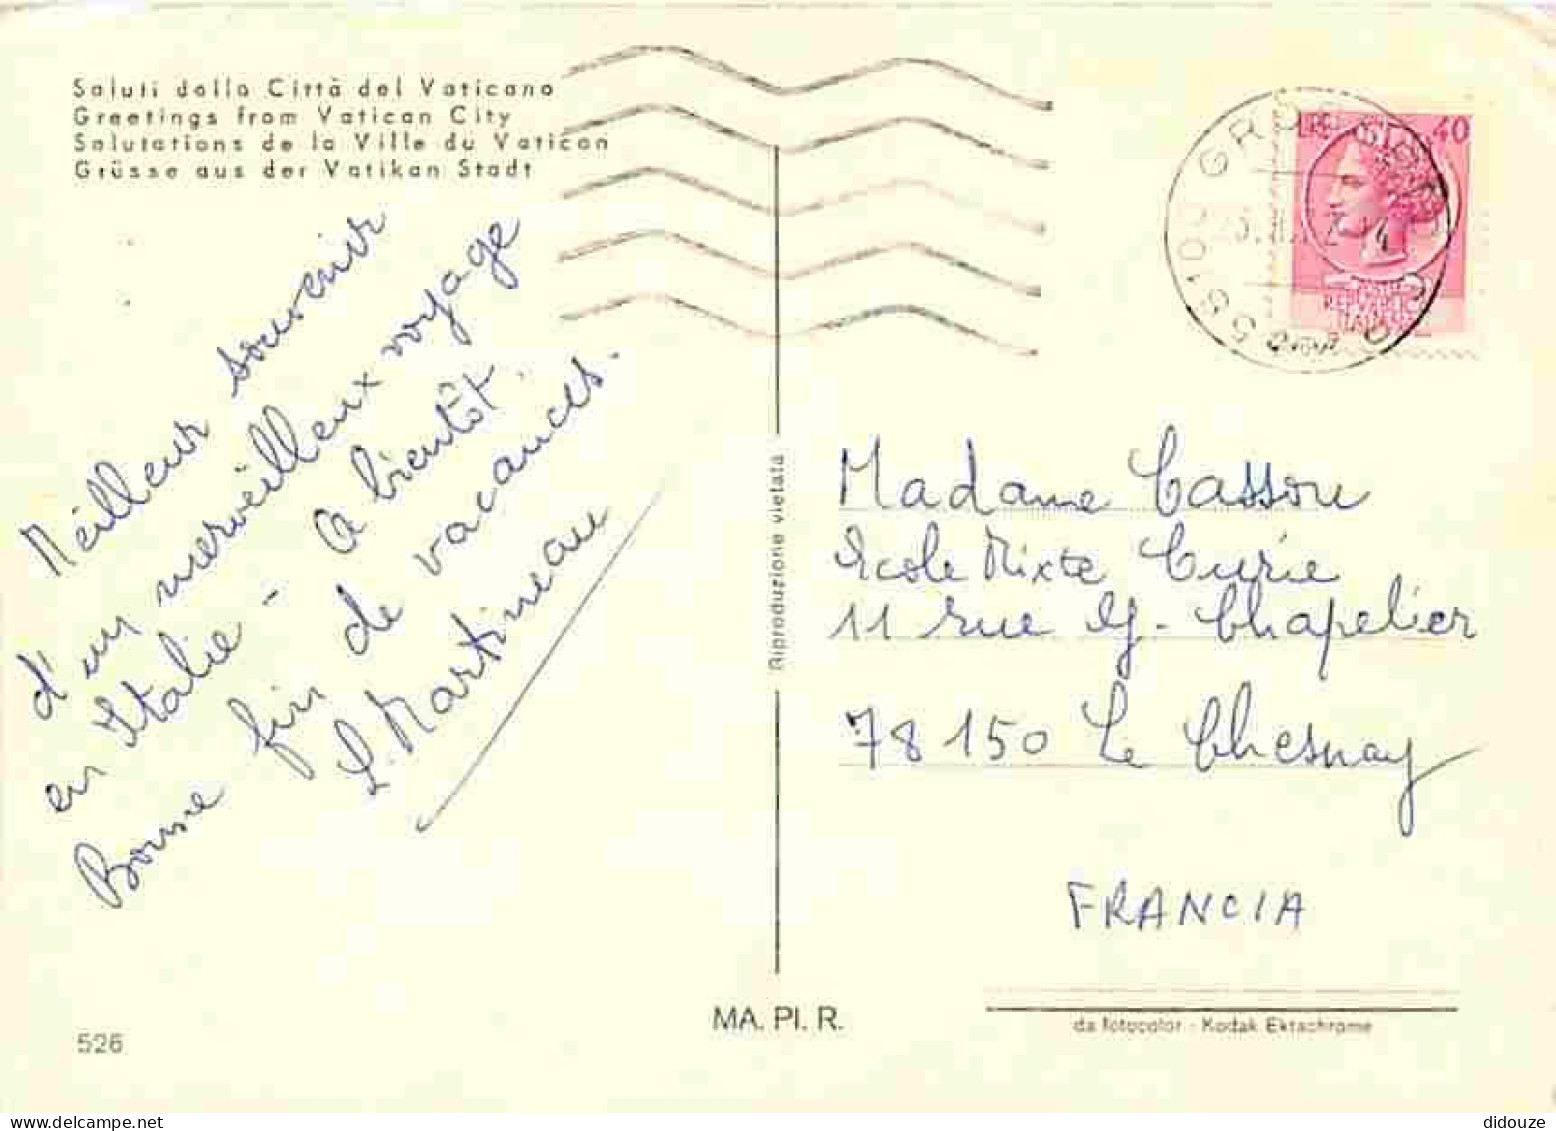 Saluti dalla Città del Vaticano
Greetings from Vatican City
Salutations de la Ville du Vatican
Grüsse aus der Vatikan Stadt
Meilleur souvenir
d'un merveilleux voyage
en Italie - A bientôt.
Bonne fin de vacances.
L. Martineau
Riproduzione vietata
40
58100 GROSSETO
Madame Cassou
Ecole Mixte Curie
11 rue G. Chapelier
78150 Le Chesnay
FRANCIA
526
MA. PI. R.
da fotocolor - Kodak Ektachrome
didouze